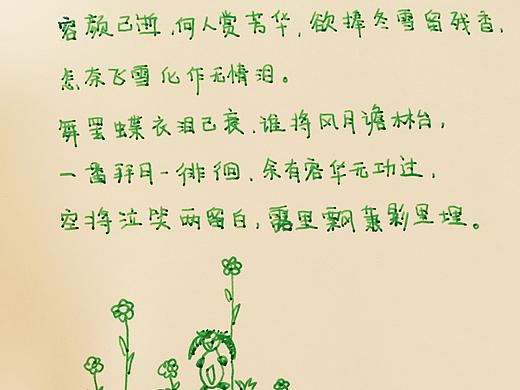 容颜已逝，何人赏芳华，欲捧冬雪留残香，
怎奈飞雪化作无情泪。
舞罢蝶衣泪已衰，谁将风月谱林台，
一番拜月一徘徊，余有容华无功过，
空将泣笑两留白，露里飘蓬影里埋。